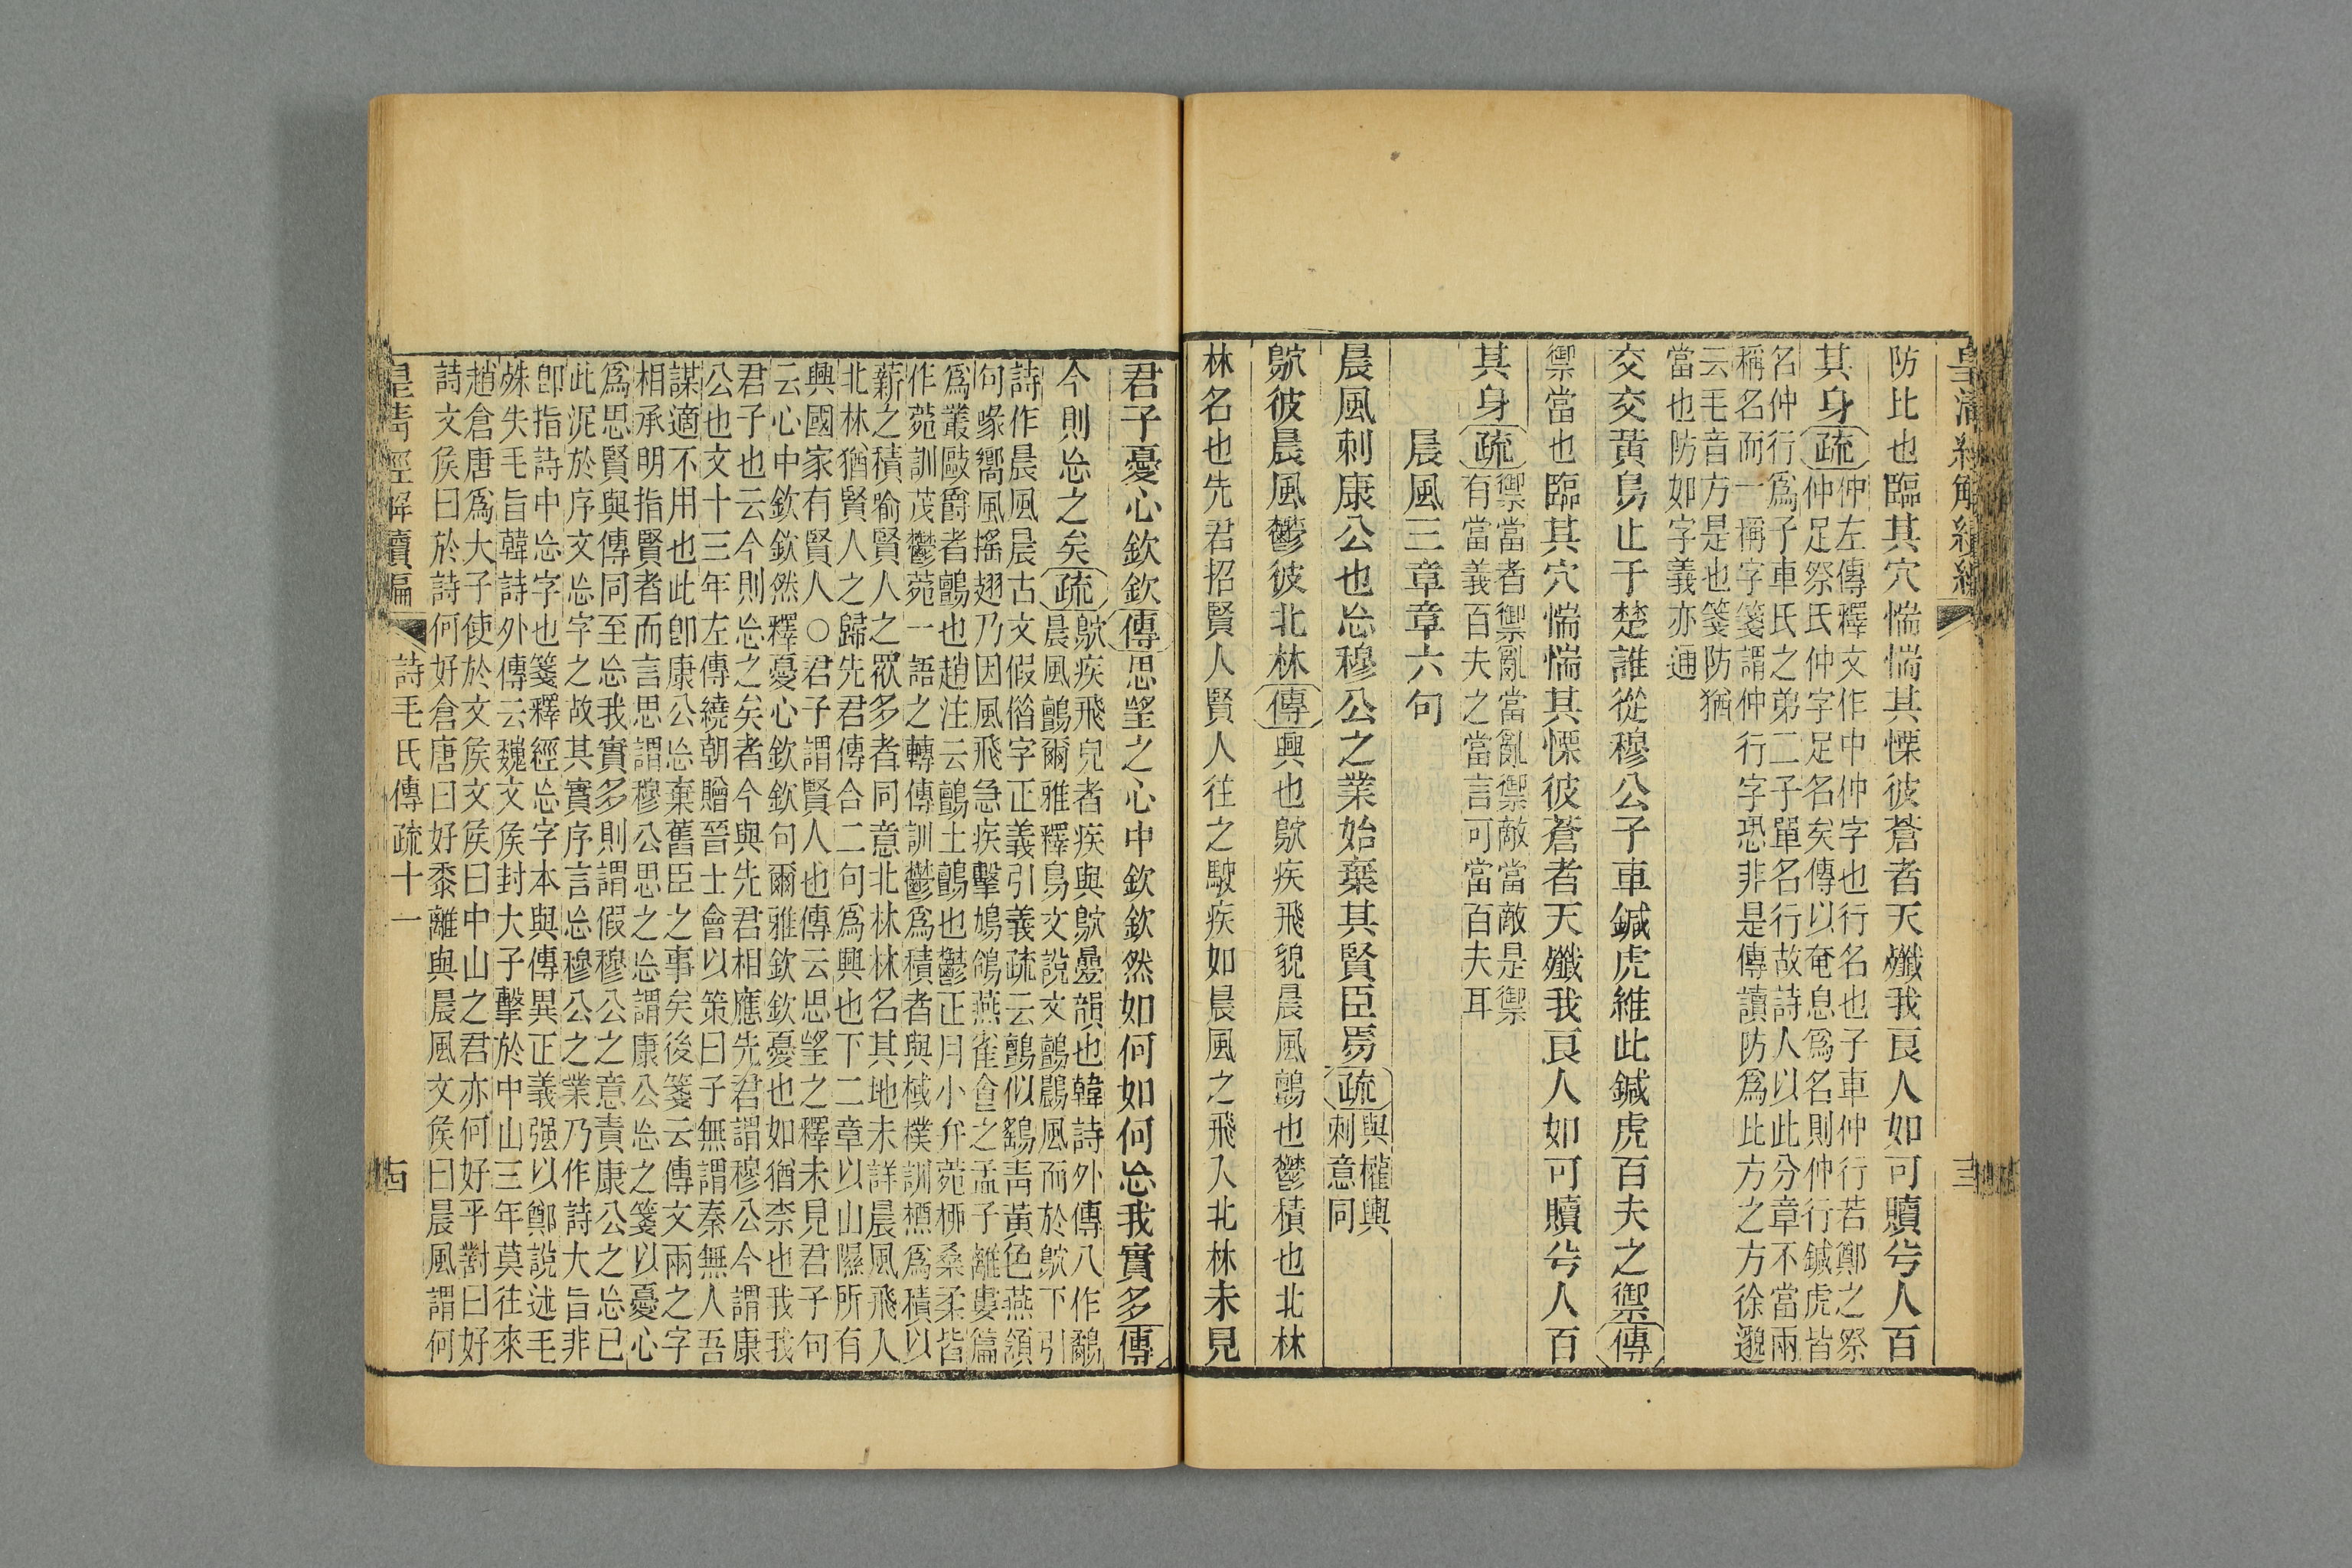 皇清經解續編 三
防比也臨其穴惴惴其慄彼蒼者天殲我良人如可贖兮人百
其身疏仲左傳釋文作中仲字也行名也子車仲行若鄭之祭
仲足祭氏仲字足名矣傳以奄息爲名則仲行鍼虎皆
名仲行爲子車氏之弟二子單名行故詩人以此分章不當兩
稱名而一稱字箋謂仲行字恐非是傳讀防爲比方之方徐邈
云毛音方是也箋防猶
當也防如字義亦通
交交黃鳥止于楚誰從穆公子車鍼虎維此鍼虎百夫之禦傳
禦當也臨其穴惴惴其慄彼蒼者天殲我良人如可贖兮人百
其身疏禦當者禦亂當亂禦敵當敵是禦
有當義百夫之當言可當百夫耳
晨風三章章六句
晨風刺康公也忘穆公之業始棄其賢臣焉疏與權輿
刺意同
鴥彼晨風鬱彼北林傳興也鴥疾飛貌晨風鸇也鬱積也北林
林名也先君招賢人賢人往之駛疾如晨風之飛入北林未見
君子憂心欽欽傳思望之心中欽欽然如何如何忘我實多傳
今則忘之矣疏鴥疾飛皃者疾與鴥疊韻也韓詩外傳八作鷸
晨風鸇爾雅釋鳥文說文鸇鷐風而於鴥下引
詩作晨風晨古文假借字正義引義疏云鸇似鷂靑黃色燕頷
句喙嚮風搖翅乃因風飛急疾擊鳩鴿燕雀食之孟子離婁篇
爲叢敺爵者鸇也趙注云鸇土鸇也鬱正月小弁菀柳桑柔皆
作菀訓茂鬱菀一語之轉傳訓鬱爲積者與棫樸訓槱爲積以
薪之積喻賢人之眾多者同意北林林名其地未詳晨風飛入
北林猶賢人之歸先君傳合二句爲興也下二章以山隰所有
興國家有賢人○君子謂賢人也傳云思望之釋未見君子句
云心中欽欽然釋憂心欽欽句爾雅欽欽憂也如猶柰也我我
君子也云今則忘之矣者今與先君相應先君謂穆公今謂康
公也文十三年左傳繞朝贈晉士會以策曰子無謂秦無人吾
謀適不用也此卽康公忘棄舊臣之事矣後箋云傳文兩之字
相承明指賢者而言思謂穆公思之忘謂康公忘之箋以憂心
爲思賢與傳同至忘我實多則謂假穆公之意責康公之忘已
此泥於序文忘字之故其實序言忘穆公之業乃作詩大旨非
卽指詩中忘字也箋釋經忘字本與傳異正義强以鄭說述毛
殊失毛旨韓詩外傳云魏文侯封大子擊於中山三年莫往來
趙倉唐爲大子使於文侯文侯曰中山之君亦何好乎對曰好
詩文侯曰於詩何好倉唐曰好黍離與晨風文侯曰晨風謂何
皇清經解續編 詩毛氏傳疏十一